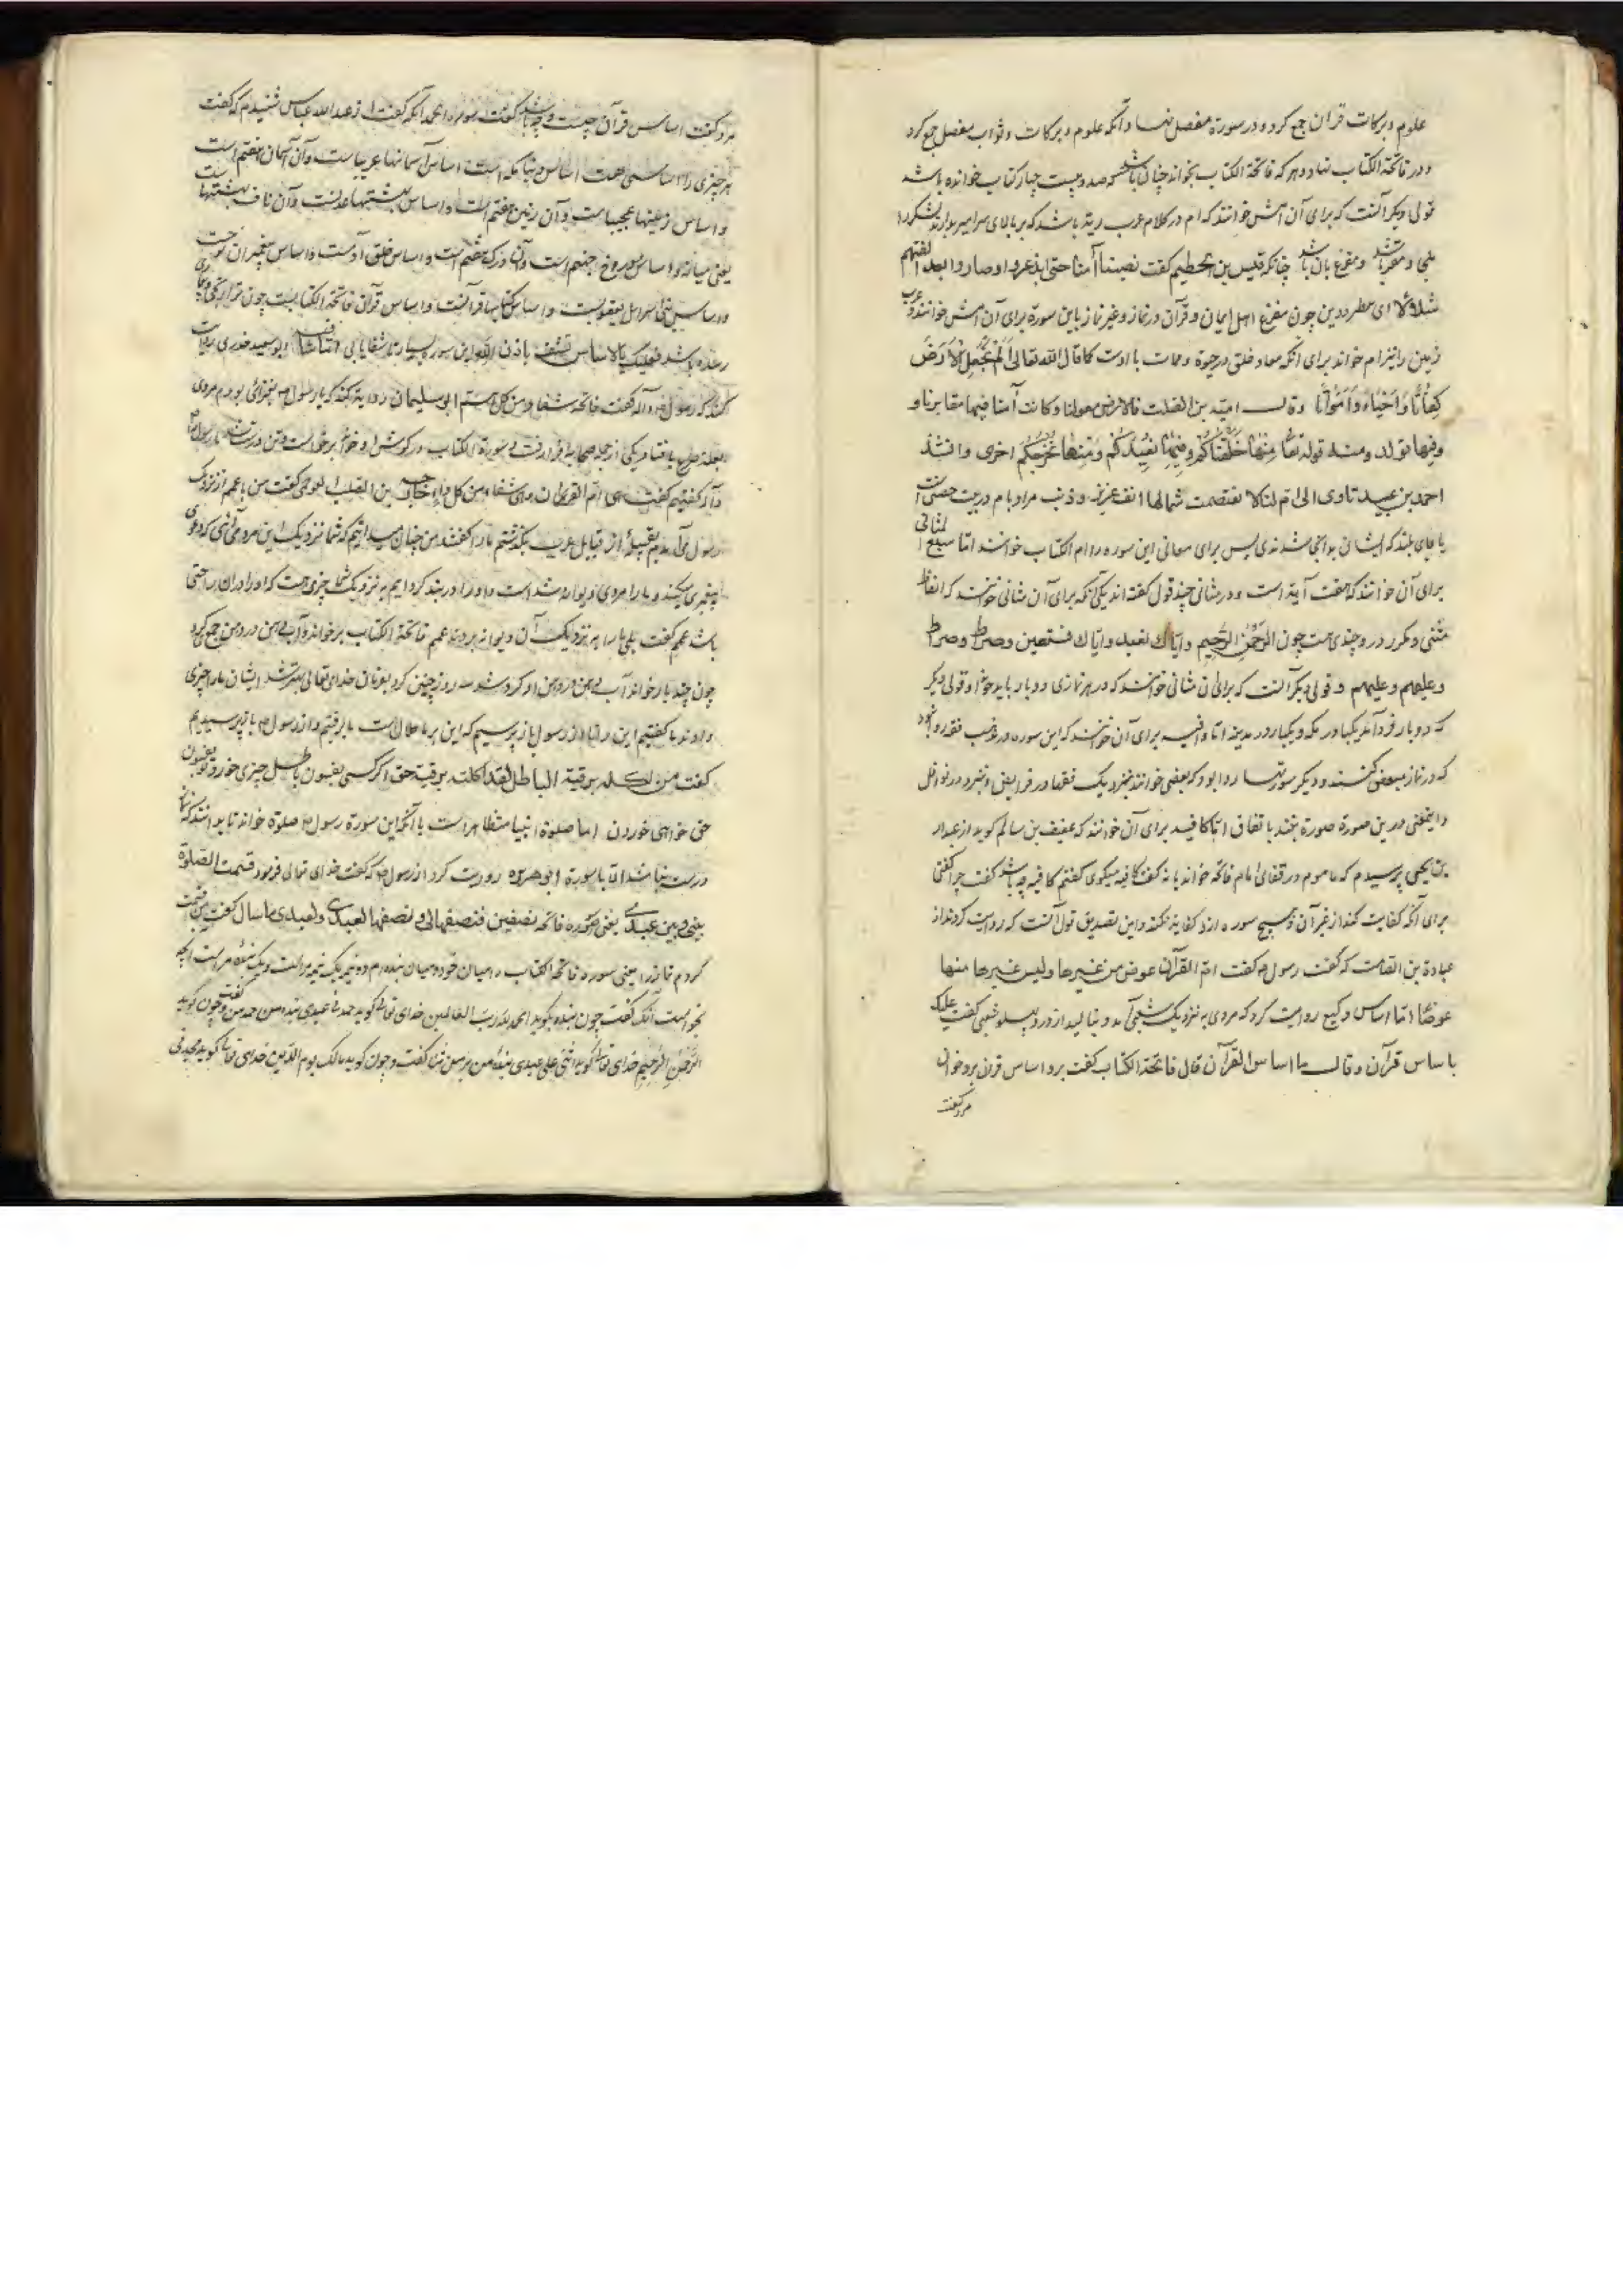 علوم و برکات قرآن جمع کرد و در سورة مفصل نهاد و آنکه علوم و برکات و ثواب مفصل جمع کرد
و در فاتحة الکتاب نهاد و هر که فاتحة الکتاب بخواند چنان باشد که صد و بیست چهار کتاب خوانده باشد
قولی دیگر آنست که برای آن امش خوانند که ام در کلام عرب رایة باشد که بر بالای سر امیر بدارند لشکر را
ملجی و مقر باشد و مفزع بان باشد چنانکه قیس بن الحطیم کفت نصبنا أمنا حتی ابذعروا و صاروا بعد الفتهم
شلالا ای مطردین چون مفزع اهل ایمان و قرآن در نماز و غیر نماز باین سورة برای آن امش خوانند و عرب
زمین را نیز ام خواند برای آنکه معاد خلق در حیوة و ممات با اوست کما قال الله تعالی اَلَمْ نَجْعَلِ الْاَرْضَ
کِفَاتًا وَاَحْیَاءً وَاَمْوَاتًا و قال امیة بن الصلت فالارض معقلنا و کانت أمنا فیها مقابرنا و
و فیها نولد و مثله قوله تعالی مِنْهَا خَلَقْنَاکُمْ وَفِیهَا نُعِیدُکُمْ وَمِنْهَا نُخْرِجُکُمْ اخری و انشد
احمد بن عبید تاوی الی ام لنا لا تغتصب شمالها انف عزیز و ذنب
یا جای بلند که ایشان بدانجا شدندی پس برای معانی این سوره را ام الکتاب خوانند اما سبع المثانی
برای آن خوانند که هفت آیة است و در مثانی چند قول کفته اند یکی آنکه برای آن مثانی خوانند که الفاظ
مثنی و مکرر در و چندی هست چون الرحمن الرحیم و ایاک نعبد و ایاک نستعین و صراط و صراط
و علیهم و علیهم و قولی دیکر آنست که برای آن مثانی خوانند که در هر نمازی دو بار باید خواند و قولی دیکر
که دو بار فرود آمد یکبار در مکه و یکبار در مدینه اما وافیه برای آن خوانند که این سوره در مذهب فقها روا نبود
که در نماز تبعیض کنند و دیکر سورتها روا بود که بعضی خوانند بنزدیک فقها در فرایض و در نوافل
و این معنی در این سورة صورة نبندد باتفاق اما کافیه برای آن خوانند که عفیف بن سالم کوید از عبدالله
بن یحیی پرسیدم که ماموم در قفای امام فاتحه خواند یا نه کفت کافیه میکوی کفتم کافیه چه باشد کفت چرا کفتی
برای آنکه کفایت کند از غیر آن و هیچ سوره ازو کفایة نکند و این تصدیق قول آنست که روایت کردند از
عبادة بن الصامت که کفت رسول کفت ام القرآن عوض من غیرها و لیس غیرها منها
عوضا اما اساس وکیع روایت کرد که مردی به نزدیک شعبی آمد و بنالید از درد پهلو شعبی کفت علیک
باساس قرآن و قال ما اساس القرآن قال فاتحة الکتاب کفت برو اساس قرآن برو خوان
مرد کفت
مرد کفت اساس قرآن چیست و چه باشد کفت سورة الحمد آنکه کفت از عبدالله عباس شنیدم که کفت
هر چیزی را اساسی هست اساس دنیا مکه است اساس آسمانها عریبا است و آن آسمان هفتم است
و اساس زمینها عجیبا است و آن زمین هفتم است و اساس بهشتها عدنست و آن ناف بهشتها است
یعنی میانه و اساس دوزخ جهنم است و آن درک هفتم است و اساس خلق آدمست و اساس پیغمبران نوحست
و اساس بنی اسرائیل یعقوبست و اساس کتابها قرآنست و اساس قرآن فاتحة الکتابست چون ترا
باشد فعلیک بالاساس تشف باذن الله این سوره شفا یابی اما شافیه ابو سعید خدری روایت
کند که رسول کفت فاتحة شفاء من کل سم ابی سلیمان روایة کند که یاران رسول بغزائی بودند مردی
یکی از جمله صحابه فرا رفت و سورة الکتاب در کوش او خواند برخواست و تن درست شد با رسول
کفتیم کفت هی ام القرآن و هی شفاء من کل داء خارجة بن الصلت البرجمی کفت من با عمم از نزدیک
رسول می آمدیم بقبیله از قبایل عرب بکذشتم ما را کفتند من چنان میدانیم که شما نزدیک این مرد می آئی که دعوی
پیغمبری میکند و ما را مردی دیوانه شده است و او را در بند کرده ایم به نزدیک شما چیزی هست که او را در آن راحتی
باشد عمم کفت بلی ما را به نزدیک آن دیوانه بردند عمم فاتحة الکتاب برخواند و آب دهن در دهن جمع کرد
چون چند بار خواند آب دهن در دهن او کرد سه روز چنین کرد بفرمان خدای تعالی بهتر شد ایشان ما را چیزی
دادند ما کفتیم این را از رسول باز پرسیم که این بر ما حلال است ما برفتیم و از رسول ما بپرسیدیم
کفت من اکله برقیة الباطل لقد اکلته برقیة حق اکر کسی بفسون باطل چیزی خورد تو بفسون
حق خواهی خوردن اما صلوة انبیا متظاهر است با آنکه این سورة رسول صلوة خواند تا بدانند که نماز
درست نباشد الا با سورة ابو هریره روایت کرد از رسول که کفت خدای تعالی فرمود قسمت الصلوة
بینی و بین عبدی یعنی سوره فاتحه نصفین فنصفها لی و نصفها لعبدی و لعبدی ما سال کفت من قسمت
کردم نماز را یعنی سورة فاتحة الکتاب میان خود و میان بنده ام دو نیم یک نیمه مراست و یک نیمه بنده مراست آنچه
بخواست آنکه کفت چون بنده بکوید الحمد لله رب العالمین خدای تعالی کوید حمدنی عبدی بنده من حمد من کفت و چون کوید
الرحمن الرحیم خدای تعالی کوید اثنی علی عبدی بنده من بر من ثنا کفت و چون کوید مالک یوم الدین خدای تعالی کوید مجدنی